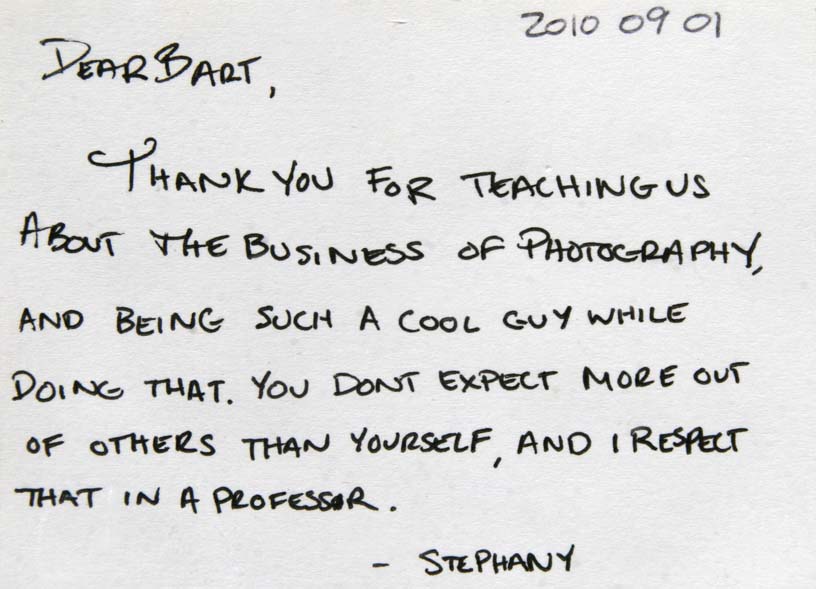 2010 09 01
DEAR BART,
THANK YOU FOR TEACHING US
ABOUT THE BUSINESS OF PHOTOGRAPHY,
AND BEING SUCH A COOL GUY WHILE
DOING THAT. YOU DONT EXPECT MORE OUT
OF OTHERS THAN YOURSELF, AND I RESPECT
THAT IN A PROFESSOR.
- STEPHANY